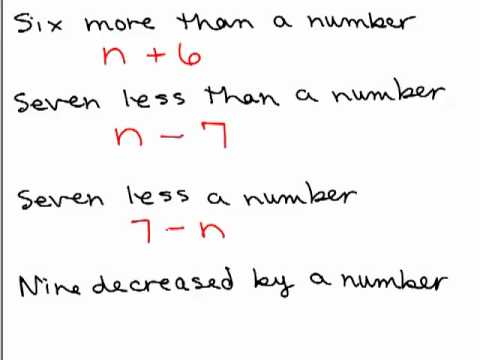 Six more than a number
n + 6
Seven less than a number
n - 7
Seven less a number
7 - n
Nine decreased by a number